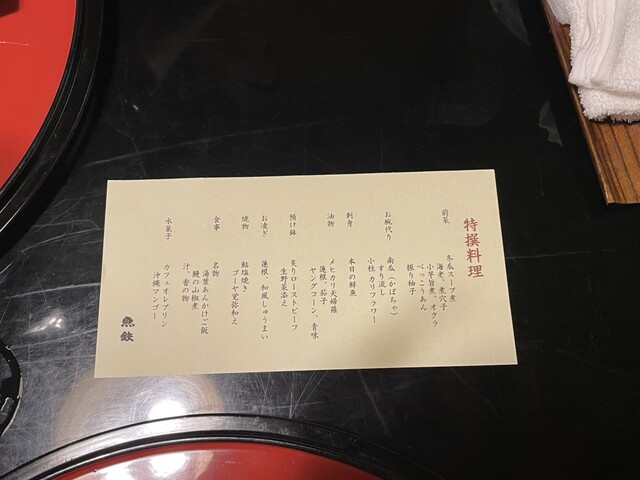 特撰料理
前菜
冬瓜スープ煮
海老、煮穴子
小芋旨煮、オクラ
べっこうあん
振り柚子
お椀代り
南瓜(かぼちゃ)
すり流し
小柱 カリフラワー
刺身
本日の鮮魚
油物
メヒカリ天婦羅
蓮根、茄子
ヤングコーン、青味
預け鉢
炙りローストビーフ
生野菜添え
お凌ぎ
蓮根、和風しゅうまい
焼物
鮎塩焼き
ゴーヤ覚弥和え
食事
名物
湯葉あんかけご飯
鰻の山椒煮
汁 香の物
水菓子
カフェオレプリン
沖縄マンゴー
魚鉄